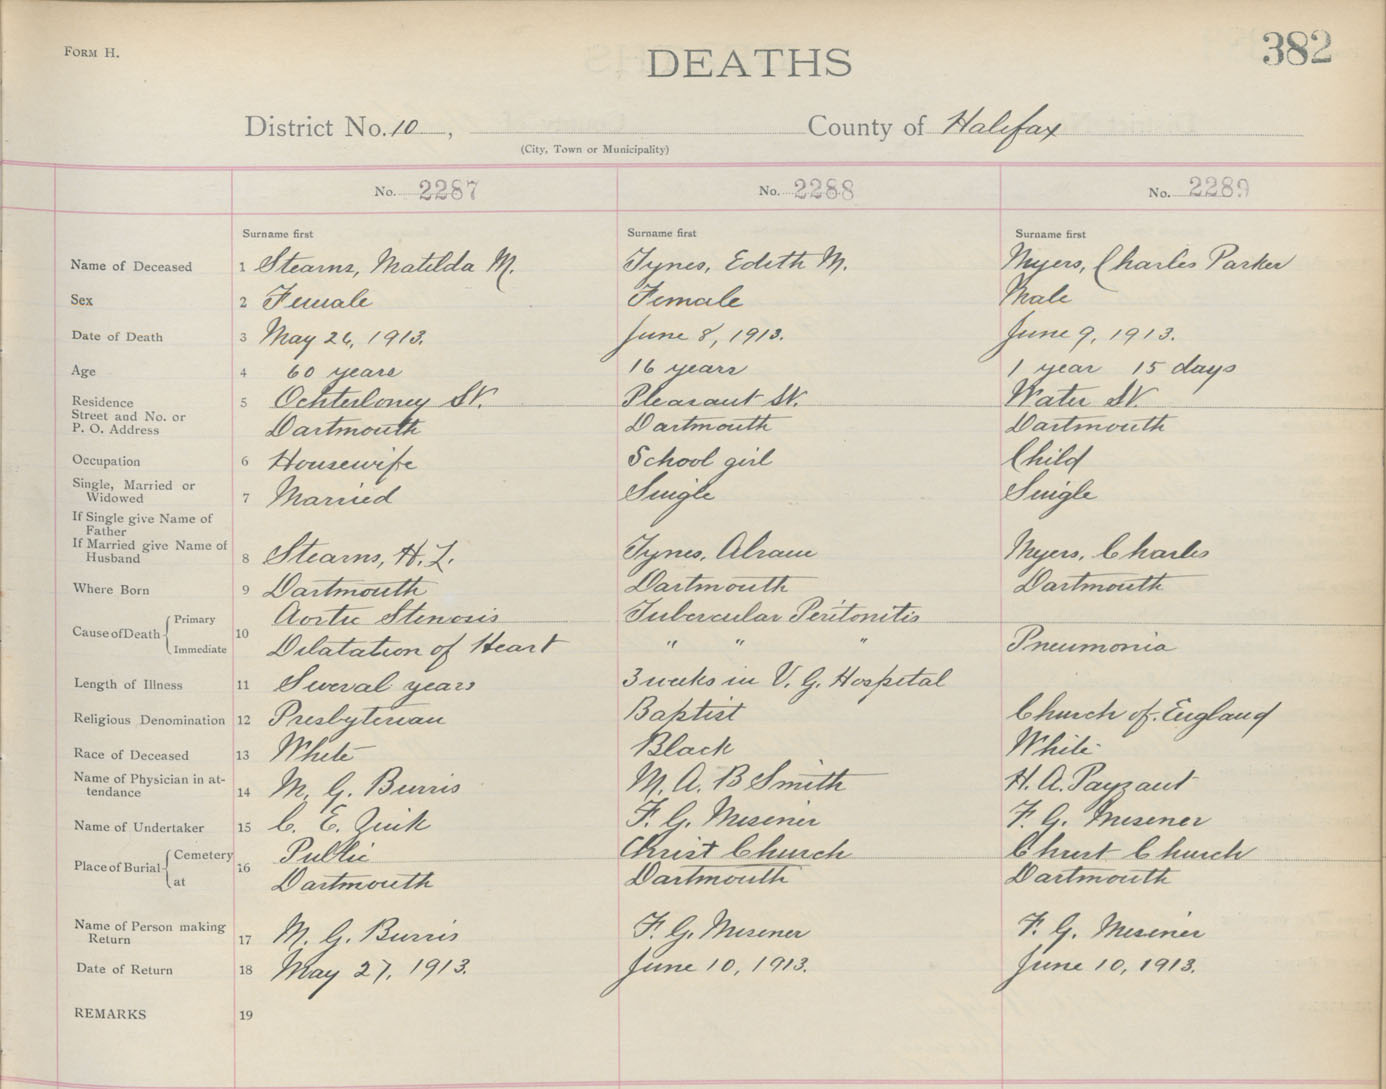 FORM H.
DEATHS
382
District No. 10, County of Halifax
(City, Town or Municipality)
No. 2287 No. 2288 No. 2289
Surname first Surname first Surname first
Name of Deceased 1 Stearns, Matilda M. Tynes, Edith M. Myers, Charles Parker
Sex 2 Female Female Male
Date of Death 3 May 26, 1913. June 8, 1913. June 9, 1913.
Age 4 60 years 16 years 1 year 15 days
Residence 5 Ochterloney St. Pleasant St. Water St.
Street and No. or
P. O. Address Dartmouth Dartmouth Dartmouth
Occupation 6 Housewife School girl Child
Single, Married or
Widowed 7 Married Single Single
If Single give Name of
Father
If Married give Name of
Husband 8 Stearns, H. L. Tynes, Abram Myers, Charles
Where Born 9 Dartmouth Dartmouth Dartmouth
Cause of Death 10 Primary Aortic Stenosis Tubercular Peritonitis
Immediate Dilatation of Heart " " " Pneumonia
Length of Illness 11 Several years 3 weeks in V. G. Hospital
Religious Denomination 12 Presbyterian Baptist Church of England
Race of Deceased 13 White Black White
Name of Physician in at-
tendance 14 M. G. Burris M. A. B Smith H. A. Payzant
Name of Undertaker 15 C. E. Zink F. G. Misener F. G. Misener
Place of Burial 16 Cemetery Public Christ Church Christ Church
at Dartmouth Dartmouth Dartmouth
Name of Person making
Return 17 M. G. Burris F. G. Misener F. G. Misener
Date of Return 18 May 27, 1913. June 10, 1913. June 10, 1913.
REMARKS 19